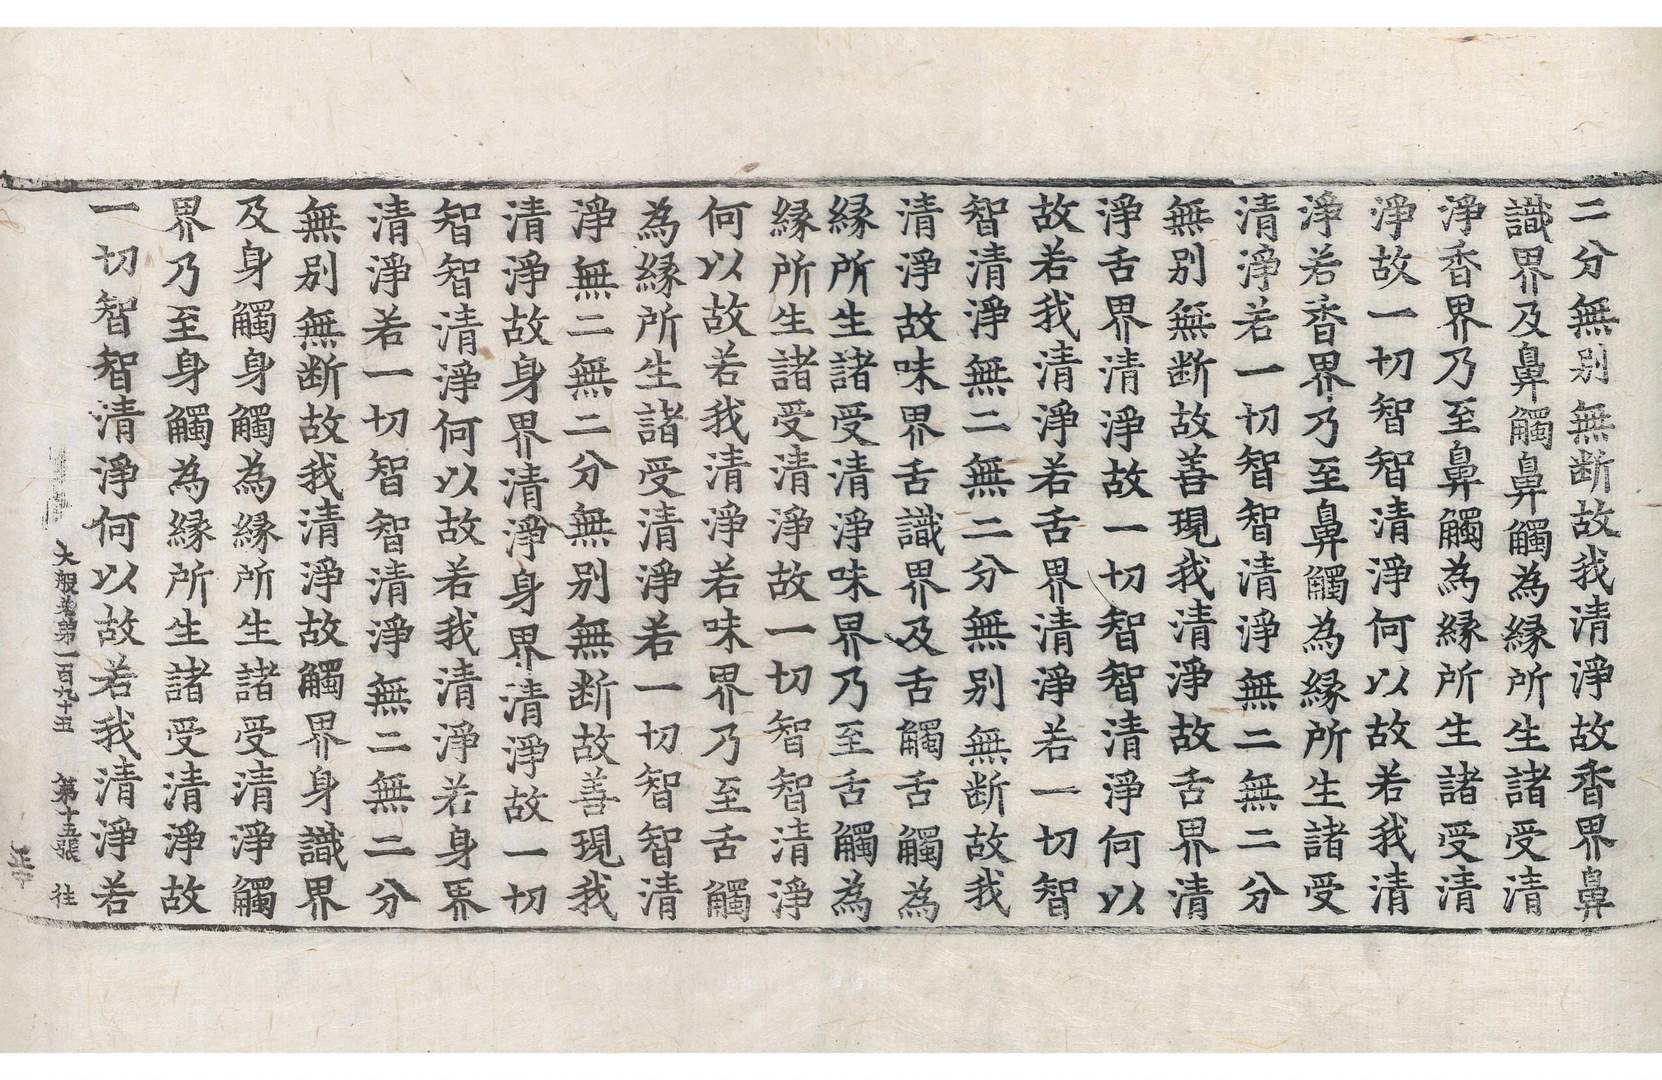 二分無別無断故我清淨故香界鼻
識界及鼻觸鼻觸為縁所生諸受清
淨香界乃至鼻觸為縁所生諸受清
淨故一切智智清淨何以故若我清
淨若香界乃至鼻觸為縁所生諸受
清淨若一切智智清淨無二無二分
無別無断故善現我清淨故舌界清
淨舌界清淨故一切智智清淨何以
故若我清淨若舌界清淨若一切智
智清淨無二無二分無別無断故我
清淨故味界舌識界及舌觸舌觸為
縁所生諸受清淨味界乃至舌觸為
縁所生諸受清淨故一切智智清淨
何以故若我清淨若味界乃至舌觸
為縁所生諸受清淨若一切智智清
淨無二無二分無別無断故善現我
清淨故身界清淨身界清淨故一切
智智清淨何以故若我清淨若身界
清淨若一切智智清淨無二無二分
無別無断故我清淨故觸界身識界
及身觸身觸為縁所生諸受清淨觸
界乃至身觸為縁所生諸受清淨故
一切智智清淨何以故若我清淨若
大般若第一百九十五　第十五張　往